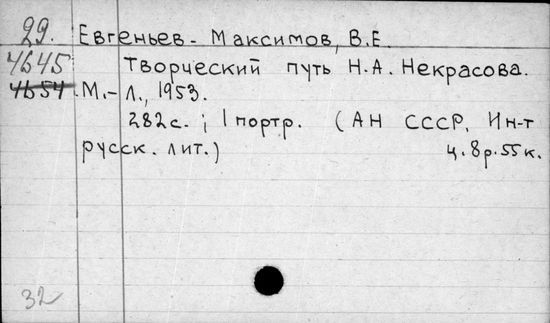 29. Евгеньев-Максимов, В.Е.
4645 Творческий путь Н.А. Некрасова.
4654 М.-Л., 1953.
282с.; 1 портр. (АН СССР, Ин-т
русск. лит.) ц. 8р.55к.
32